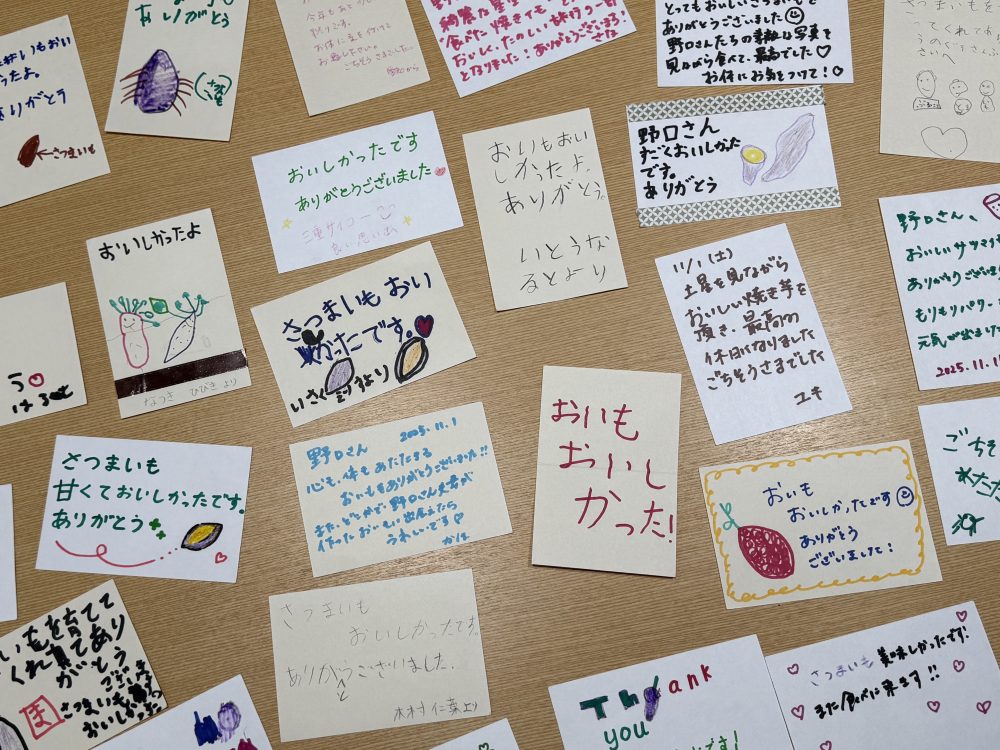 おいもおい
ったよ。
ありがとう
さつまいも
ありがとう
今年もあ
ごちそうさまでした。
食べた焼きいも
おいしく、たのしい旅行の一部
となりました！ありがとうございます！
さな
とってもおいしいさつまいもを
ありがとうございました
野口さんたちの素敵な写真を
見ながら食べて、最高でした♡
お体にお気をつけて！
さつまいもを
ってくれてあ
さいへ
おいしかったです
ありがとうございました
三重サイコー
良い思い出
おいもおい
しかったよ。
ありがとう。
いとうな
るとより
野口さん
すごくおいしかった
です。
ありがとう
おいしかったよ
なつき ひびき より
さつまいも おい
かったです。
いさく より
11/1(土)
土屋を見ながら
おいしい焼き芋を
頂き、最高の
休日になりました
ごちそうさまでした
ユキ
野口さん、
おいしいサツマイ
ありがとうございま
もりもりパワー
元気が出ました
2025.11.1
う
はると
さつまいも
甘くておいしかったです。
ありがとう
野口さん 2025.11.1
心も、体もあたたまる
おいもをありがとうございました!!
また、どこかで野口さん夫妻が
作ったおいもに出会えたら
うれしいです
おいも
おいし
かった!
おいも
おいしかったです
ありがとう
ございました!
ごちそ
さつまいも
おいしかったです。
ありがとうございました。
木村 仁菜より
いもを育てて
くれ育てあり
がとう
ござい
ま
さつまいも
おいしか
った
Thank
you
です!
さつまいも 美味しかったです!
また食べに来ます!!